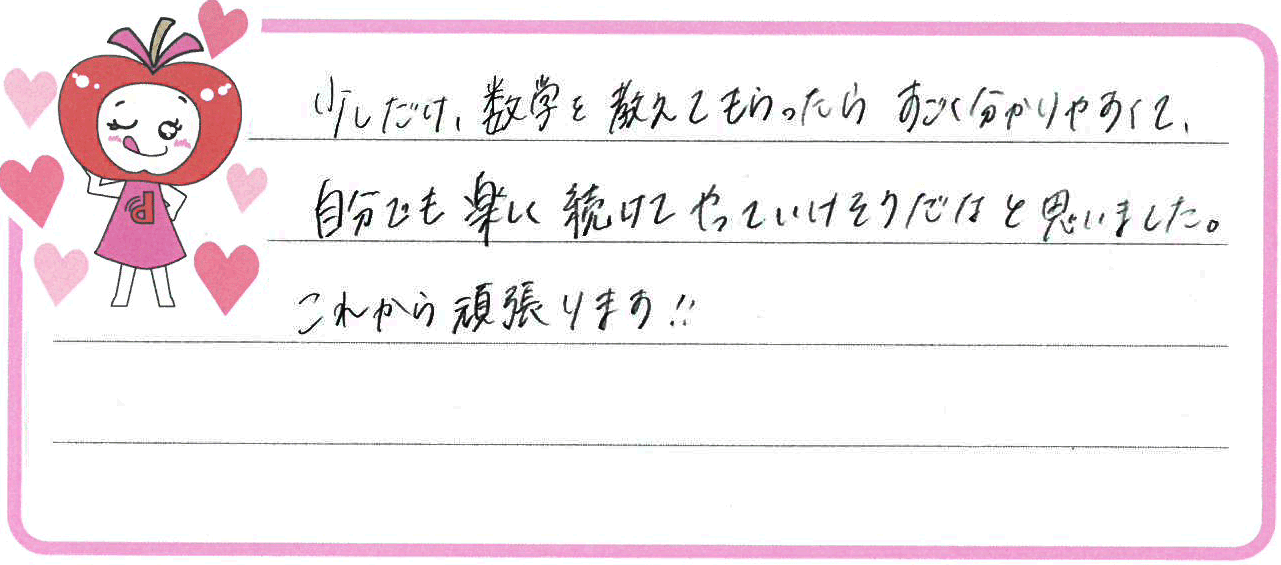 少しだけ、数学を教えてもらったら すごく分かりやすくて、
自分でも楽しく続けてやっていけそうだなと思いました。
これから頑張ります!!